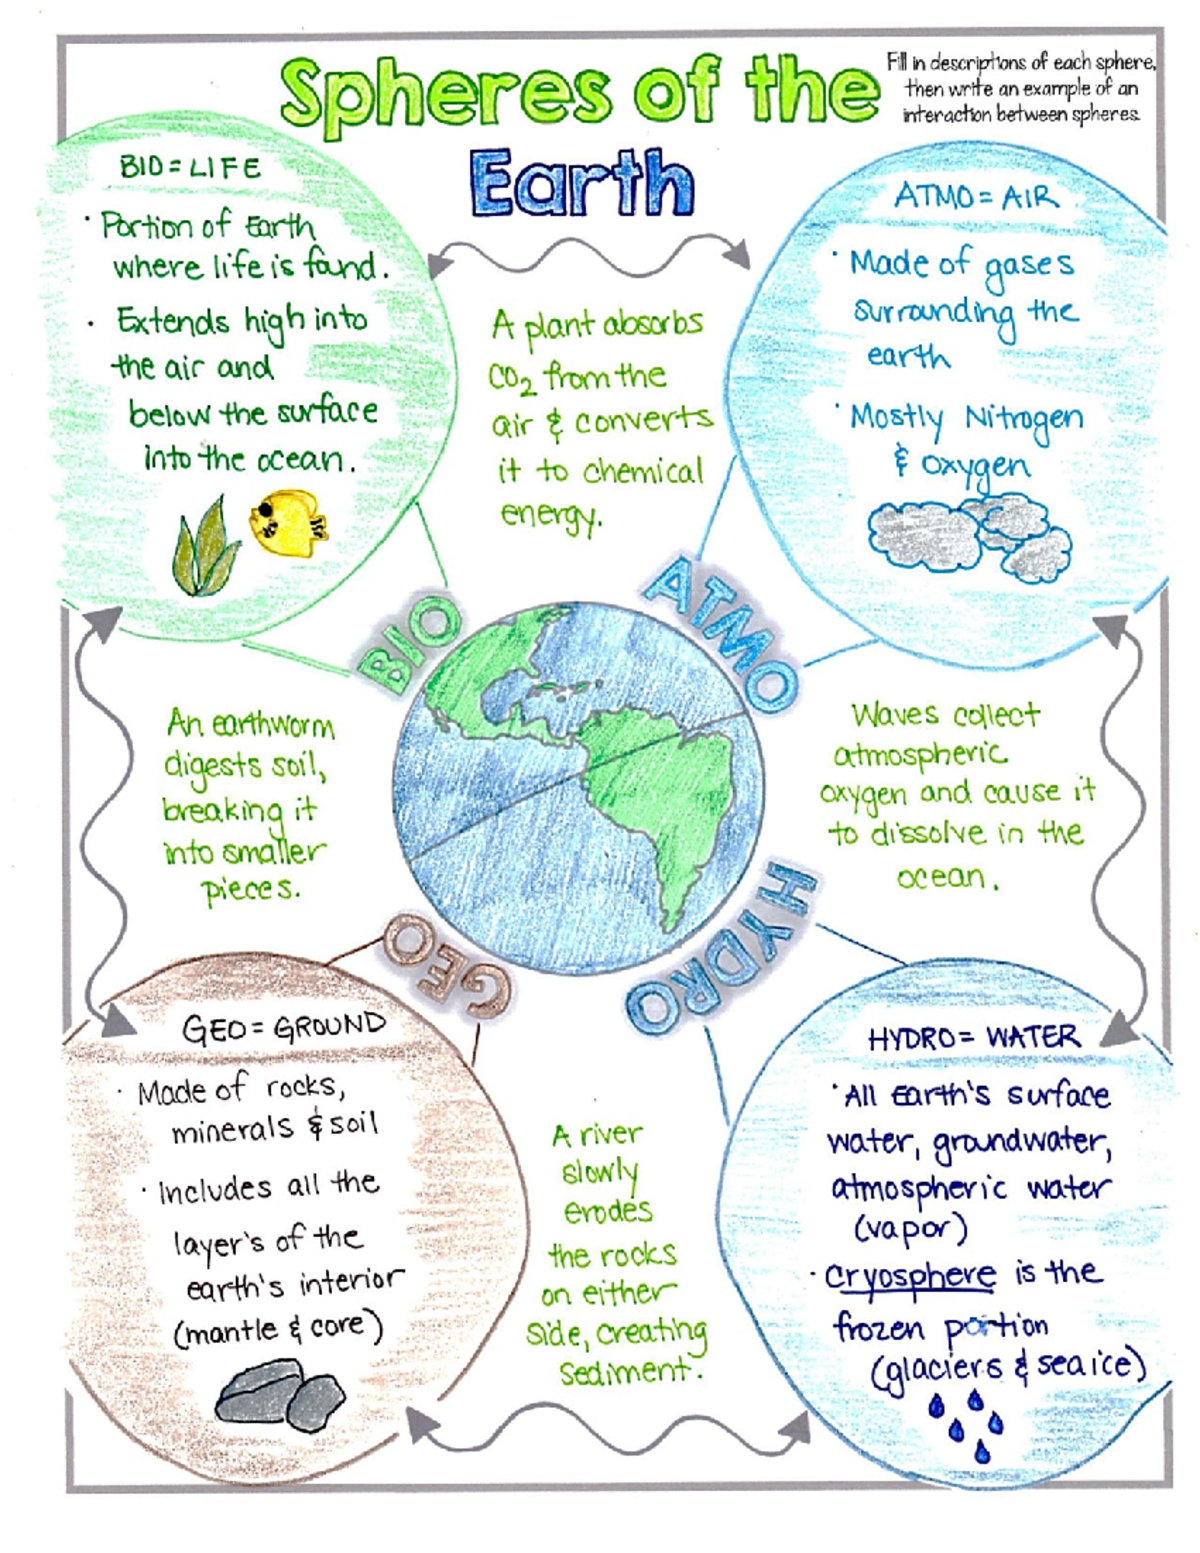 Spheres of the
Earth
Fill in descriptions of each sphere,
then write an example of an
interaction between spheres.
BIO = LIFE
· Portion of Earth
where life is found.
· Extends high into
the air and
below the surface
into the ocean.
A plant absorbs
CO₂ from the
air & converts
it to chemical
energy.
ATMO = AIR
· Made of gases
surrounding the
earth
· Mostly Nitrogen
& oxygen
BIO
ATMO
An earthworm
digests soil,
breaking it
into smaller
pieces.
Waves collect
atmospheric
oxygen and cause it
to dissolve in the
ocean.
GEO
HYDRO
GEO = GROUND
· Made of rocks,
minerals & soil
· Includes all the
layer's of the
earth's interior
(mantle & core)
A river
slowly
erodes
the rocks
on either
side, creating
sediment.
HYDRO = WATER
· All Earth's surface
water, groundwater,
atmospheric water
(vapor)
· Cryosphere is the
frozen portion
(glaciers & sea ice)